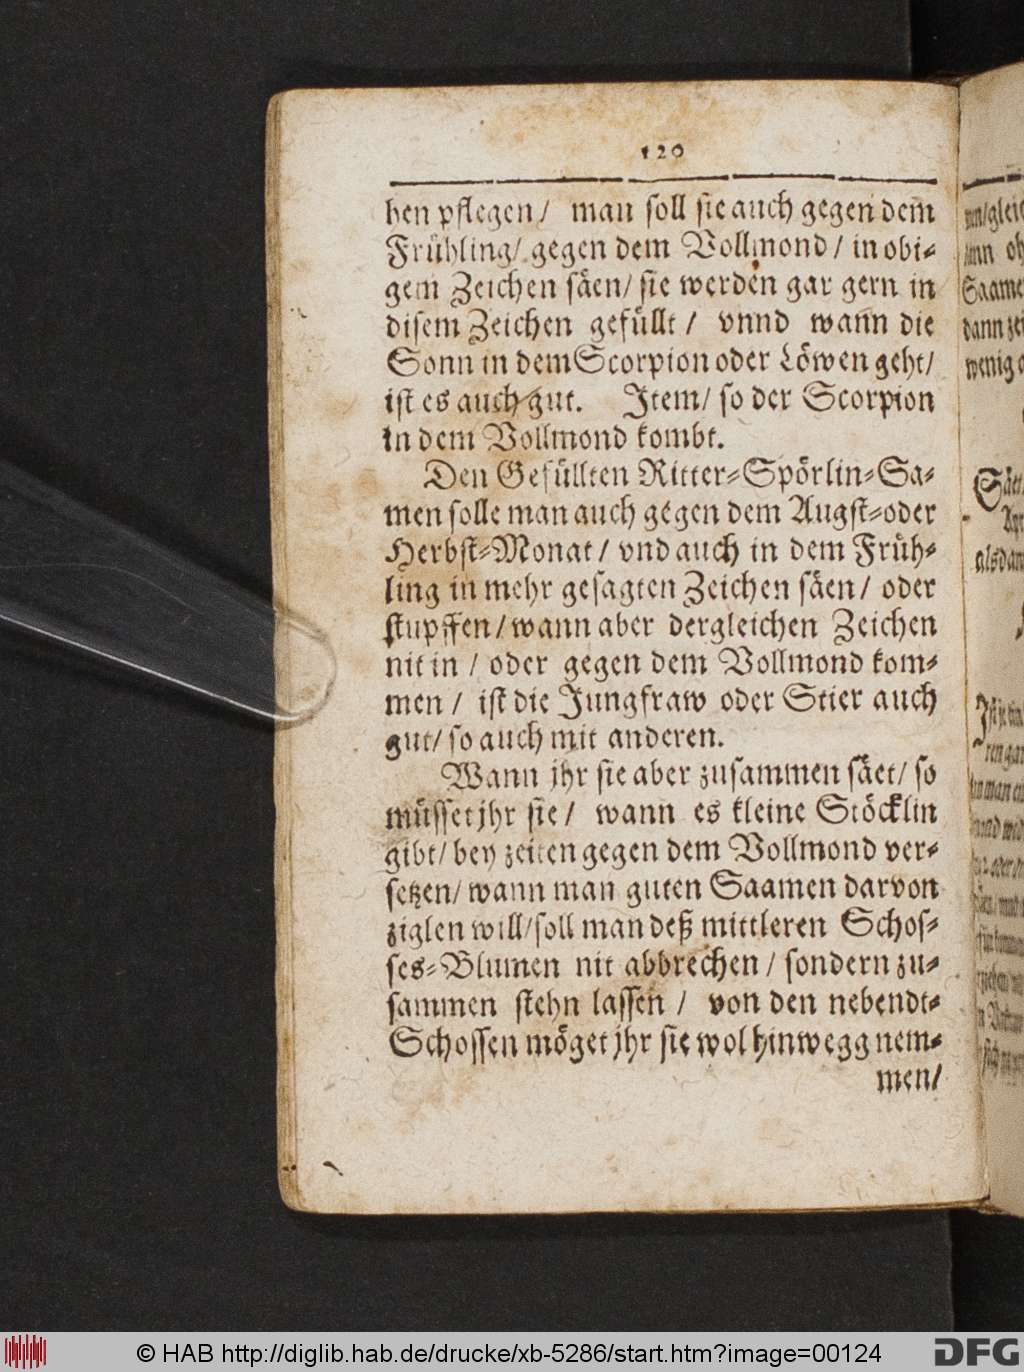 120
ben pflegen / man soll sie auch gegen dem
Frühling / gegen dem Vollmond / in obi-
gem Zeichen säen / sie werden gar gern in
disem Zeichen gefüllt / vnnd wann die
Sonn in dem Scorpion oder Löwen geht /
ist es auch gut. Item / so der Scorpion
in dem Vollmond kombt.
Den Gefüllten Ritter-Spörlin-Sa-
men solle man auch gegen dem Augst-oder
Herbst-Monat / vnd auch in dem Früh-
ling in mehr gesagten Zeichen säen / oder
stupffen / wann aber dergleichen Zeichen
nit in / oder gegen dem Vollmond kom-
men / ist die Jungfraw oder Stier auch
gut / so auch mit anderen.
Wann jhr sie aber zusammen säet / so
müsset jhr sie / wann es kleine Stöcklin
gibt / bey zeiten gegen dem Vollmond ver-
setzen / wann man guten Saamen darvon
ziglen will / soll man deß mittleren Schos-
ses-Blumen nit abbrechen / sondern zu-
sammen stehn lassen / von den nebendt-
Schossen möget jhr sie wol hinwegg nem-
men /
Saame
dann
wenig
alsdan
© HAB http://diglib.hab.de/drucke/xb-5286/start.htm?image=00124
DFG